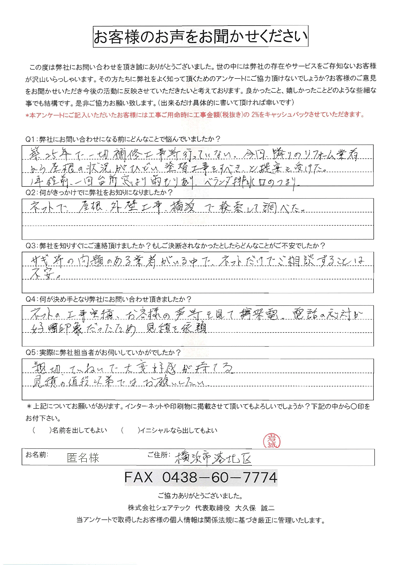 お客様のお声をお聞かせください
この度は弊社にお問い合わせを頂き誠にありがとうございました。世の中には弊社の存在やサービスをご存知ないお客様
が沢山いらっしゃいます。その方たちに弊社をよく知って頂くためのアンケートにご協力頂けないでしょうか?お客様のご意見
をお聞かせいただき今後の活動に反映させていただきたいと考えております。良かったこと、嬉しかったことどのような些細な
事でも結構です。是非ご協力お願い致します。(出来るだけ具体的に書いて頂ければ幸いです)
*本アンケートにご記入いただいたお客様には工事ご用命時に工事金額(税抜き)の2%をキャッシュバックさせていただきます。
Q1:弊社にお問い合わせになる前にどんなことで悩んでいましたか?
築25年で一切補修工事等行っていない。今回 隣りのリフォーム業者
より屋根の状況がひどい、塗替工事をすべき、と提案を受けた。
1年程前、一回台所窓より雨もり有 ベランダ排水口のつまり。
Q2:何がきっかけで弊社をお知りになりましたか?
ネットで、屋根、外壁工事、横浜 で検索して調べた。
Q3:弊社を知りすぐにご連絡頂けましたか?もしご決断されなかったとしたらどんなことがご不安でしたか?
サギ等の問題のある業者がいる中で、ネットだけでご相談することは
不安。
Q4:何が決め手となり弊社にお問い合わせ頂きましたか?
ネットの工事実績、お客様の声等を見て 電話の応対が
好印象だったため 見積を依頼
Q5:実際に弊社担当者がお伺いしていかがでしたか?
親切、ていねいで大変好感が持てる
見積の値段次第ではお願いしたい
*上記についてお願いがあります。インターネットや印刷物に掲載させて頂いてもよろしいでしょうか?下記の中から〇印を
お付下さい。
( )名前を出してもよい ( )イニシャルなら出してもよい
お名前: 匿名様 ご住所: 横浜市港北区
FAX 0438-60-7774
ご協力ありがとうございました。
株式会社シェアテック 代表取締役 大久保 誠二
当アンケートで取得したお客様の個人情報は関係法規に基づき厳正に管理いたします。